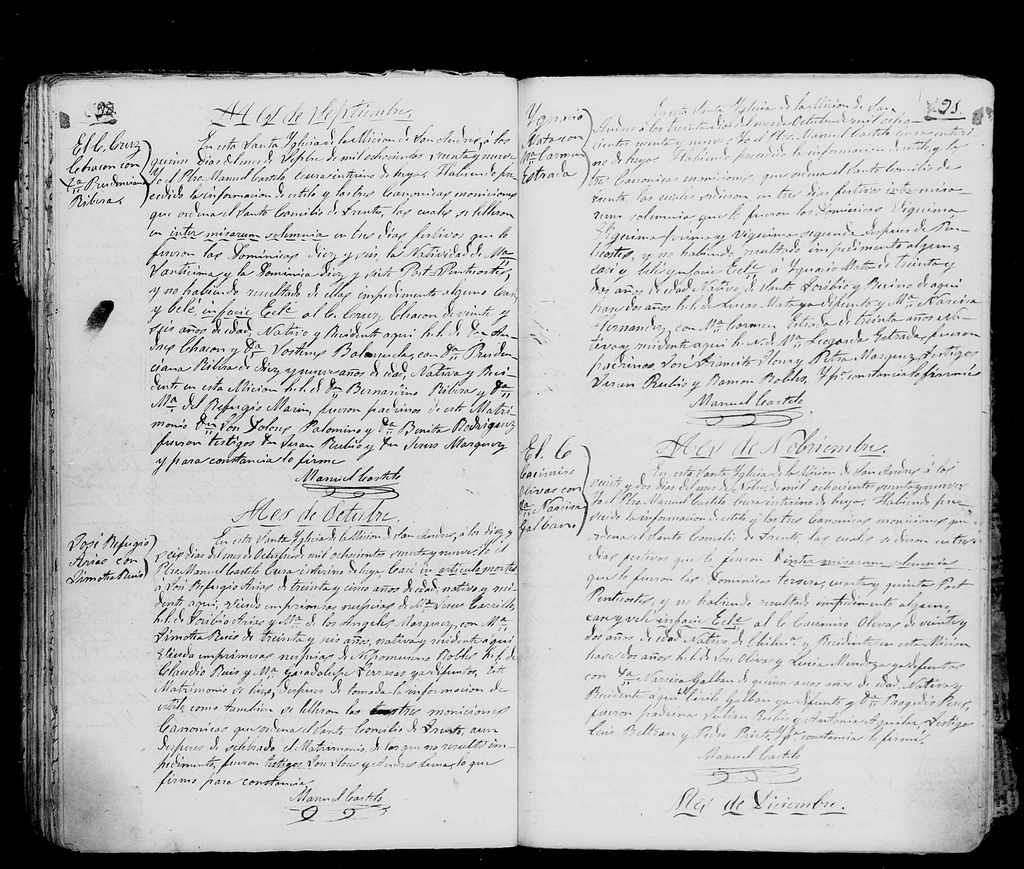 Mes de Septiembre.
El C. Cruz
Chacon con
Da. Prudencia
Ribera.
En esta Santa Yglesia de la Micion de San Andres, á los
quince dias del mes de Septbe de mil ochocientos sesenta y nueve
Yo el Pbro. Manuel Castelo, cura interino de hoyos. Habiendo pre-
cedido la informacion de estilo y las tres Canonicas moniciones
que ordena el Santo Concilio de Trento, las cuales se lelleron
en inter misarum solemnia en tres dias festivos que lo
fueron las Dominicas diez y seis, la Natividad de Ma.
Santisima y la Dominica diez y siete Post. Pentecostes,
y no habiendo resultado de ellas impedimento alguno Casé
y Velé, in facie Ecle. al C. Cruz Chacon de veinte y
seis años de edad, Nativo y Residente aqui h.l. de Dn. An-
dres Chacon y Da. Sostenes Balensuela, con Da. Pruden-
ciana Ribera de diez y nueve años de edad, Nativa y Resi-
dente en esta Micion h.l. de Dn. Bernardino Ribera y Da.
Ma. del Refugio Marin, fueron padrinos de este Matri-
monio Dn. Dolores Palomino y Da. Benita Rodriguez
fueron testigos Dn. Rubio y Dn. Jesus Marquez
y para constancia lo firmé
Manuel Castelo
Mes de Octubre.
José Refugio
Arias con
Timotea Ruis
En esta Santa Yglesia de la Micion de San Andres, á los diez y
seis dias del mes de Octubre de mil ochocientos sesenta y nueve. Yo el
Pbro. Manuel Castelo Cura interino de hoyos Casé in articulo mortis
á José Refugio Arias de treinta y cinco años de edad, nativo y resi-
dente aqui, Viudo en primeras nupcias de Ma. Jesus Carrillo
h.l. de Toribio Arias y Ma. de los Angeles Marquez, con Ma.
Timotea Ruis de treinta y seis años, nativa y residente aqui
Viuda en primeras nupcias de Nepomuceno Robles h.l. de
Claudio Ruis y Ma. Guadalupe ya difuntos. Este
Matrimonio se hizo, despues de tomada la informacion de
estilo como tambien se lelleron las tres moniciones
Canonicas que ordena el Santo Concilio de Trento, aun
despues de selebrado el Matrimonio, de los que no resultó im-
pedimento, fueron testigos y lo que
firmo para constancia
Manuel Castelo
Ygnacio
Mata con
Ma. Carmen
Estrada
En esta Santa Yglesia de la Micion de San
Andres á los treinta dias del mes de Octubre de mil ocho-
cientos sesenta y nueve, Yo el Pbro. Manuel Castelo cura interi-
no de hoyos. Habiendo precedido la informacion de estilo, y las
tres Canonicas moniciones, que ordena el Santo Concilio de
Trento, las cuales se dieron en tres dias festivos inter misa-
rum solemnia que lo fueron las Dominicas Vigecima
Vigecima primera y Vigecima segunda despues de Pen-
tecostes, y no habiendo resultado impedimento alguno,
Casé y Velé in facie Ecle. á Ygnacio Mata de treinta y
dos años de edad Nativo de Santo Toribio y Vecino de aqui
hace dos años h.l. de Lucas Mata ya difunto y Ma. Narcisa
Hernandez, con Ma. Carmen Estrada de treinta años Na-
tiva y residente aqui h.N. de Ma. Leocarda Estrada, fueron
padrinos José Flores y Petra Marquez Testigos
Rubio y Ramon Robles, Y pa. constancia lo firmé
Manuel Castelo
Mes de Nobiembre.
El C.
Casimiro
Olivas con
Da. Narcisa
Galban
En esta Santa Yglesia de la Micion de San Andres á los
veinte y dos dias del mes de Nobre. de mil ochocientos sesenta y nueve
Yo el Pbro. Manuel Castelo cura interino de hoyos. Habiendo pre-
cedido la informacion de estilo y las tres Canonicas moniciones que
ordena el Santo Concilio de Trento, las cuales se dieron en tres
dias festivos que lo fueron inter misarum solemnia
que lo fueron las Dominicas tercera, cuarta y quinta Post.
Pentecostes, y no habiendo resultado impedimento alguno,
casé y velé in facie Ecle. al C. Casimiro Olivas de veinte y
dos años de edad Nativo de Chihua. y Residente en esta Micion
hase dos años h.l. de Olivas y Lucia Mendoza ya difuntos
con Da. Narcisa Galban de quince años de edad, Nativa y
Residente aqui Galban ya difunto y Da.
fueron padrinos Julian Rubio y Antonia Aguilar, Testigos
Luis Beltran y Pedro Prieto, Y pa. constancia lo firmé.
Manuel Castelo
Mes de Diciembre.